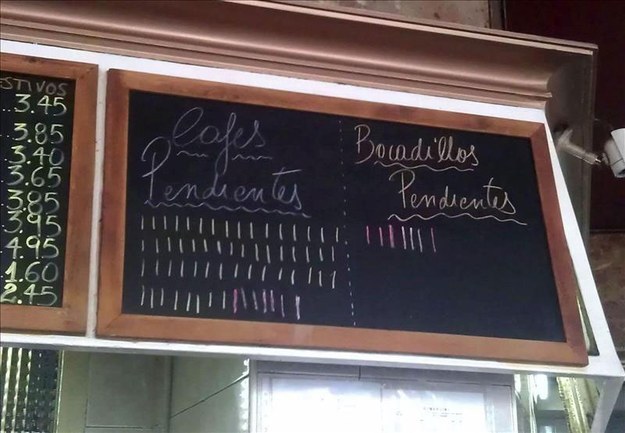 STIVOS
3.45
3.85
3.40
3.65
3.85
3.95
4.95
1.60
2.45
Cafes
Pendientes
Bocadillos
Pendientes